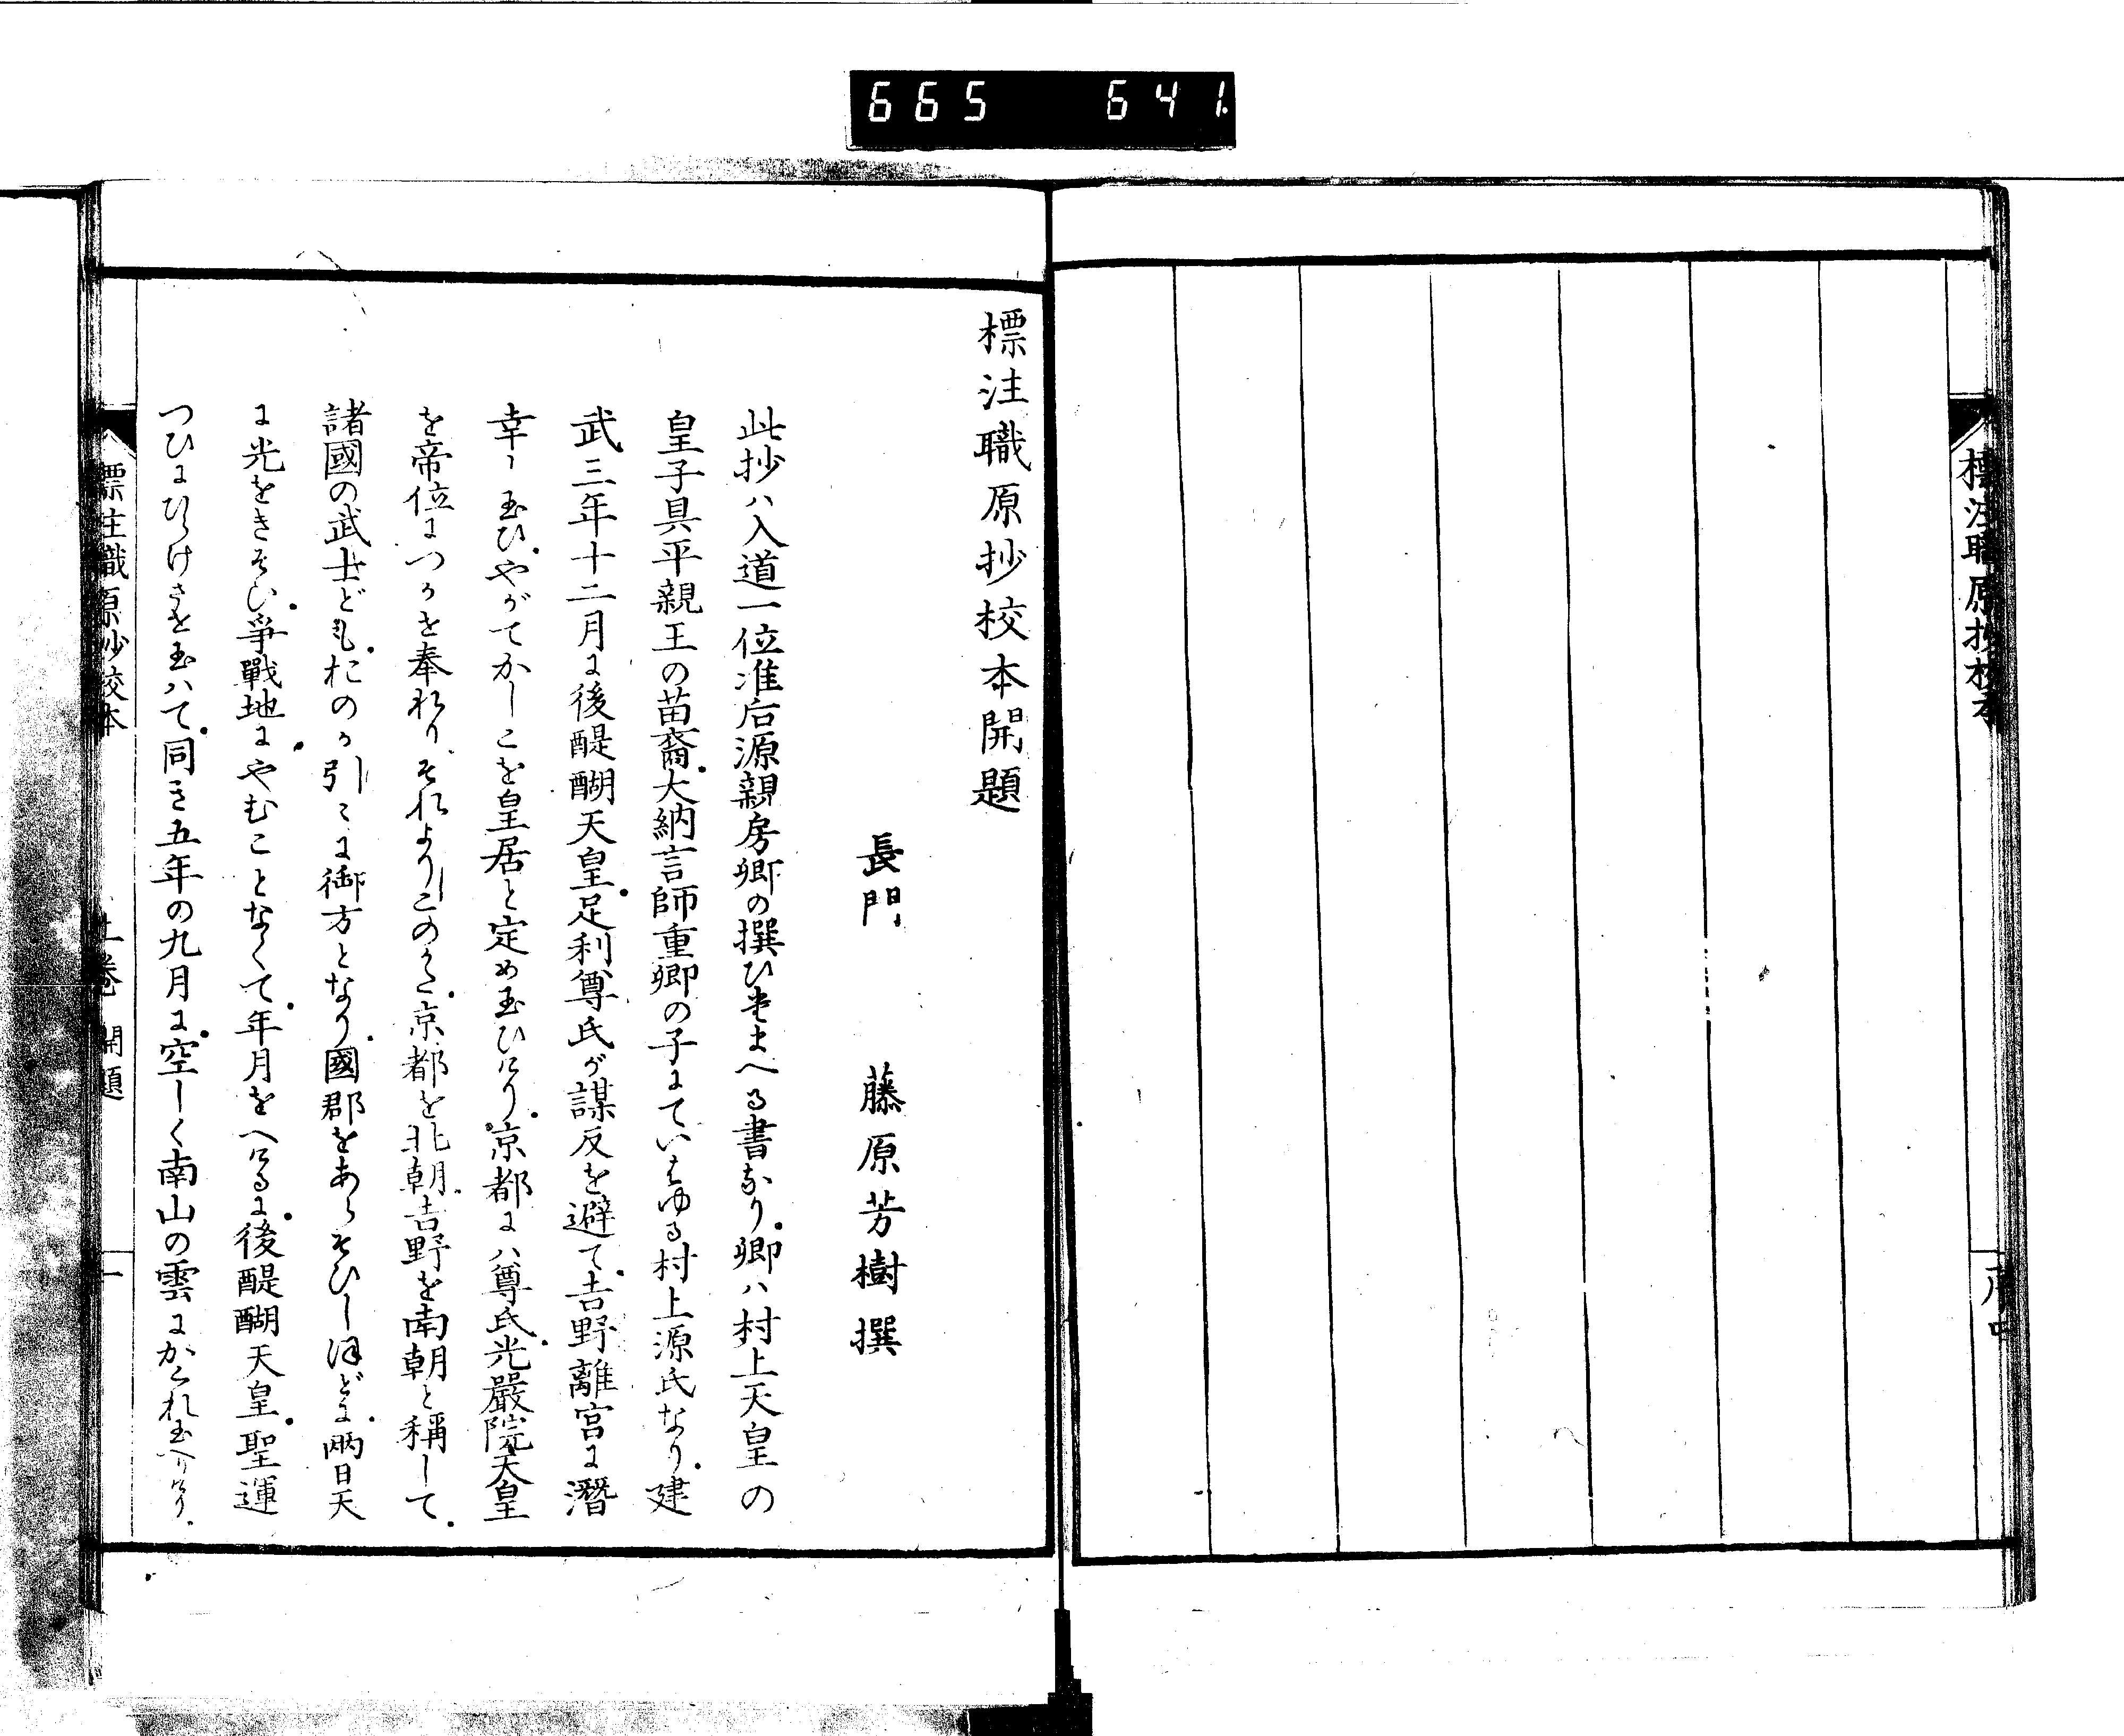 665 641
標注職原抄校本
序 四
標注職原抄校本開題
長門 藤原芳樹撰
此抄ハ入道一位准后源親房卿の撰ひたまへる書なり。卿ハ村上天皇の
皇子具平親王の苗裔。大納言師重卿の子にていはゆる村上源氏なり。建
武三年十二月に後醍醐天皇。足利尊氏が謀反を避て。吉野離宮に潛
幸し玉ひ。やがてかしこを皇居と定め玉ひけり。京都にハ尊氏。光嚴院天皇
を帝位につけを奉れり。それよりこのかた。京都を北朝。吉野を南朝と稱して。
諸國の武士ども。おのか引〻に御方となり。國郡をあらそひしほどに。兩日天
に光をきそひ。爭戰地にやむことなくて。年月をへけるに。後醍醐天皇。聖運
つひにひらけさせ玉ハて。同き五年の九月に。空しく南山の雲にかくれ玉へりけり。
標注職原抄校本 上卷 開題 一